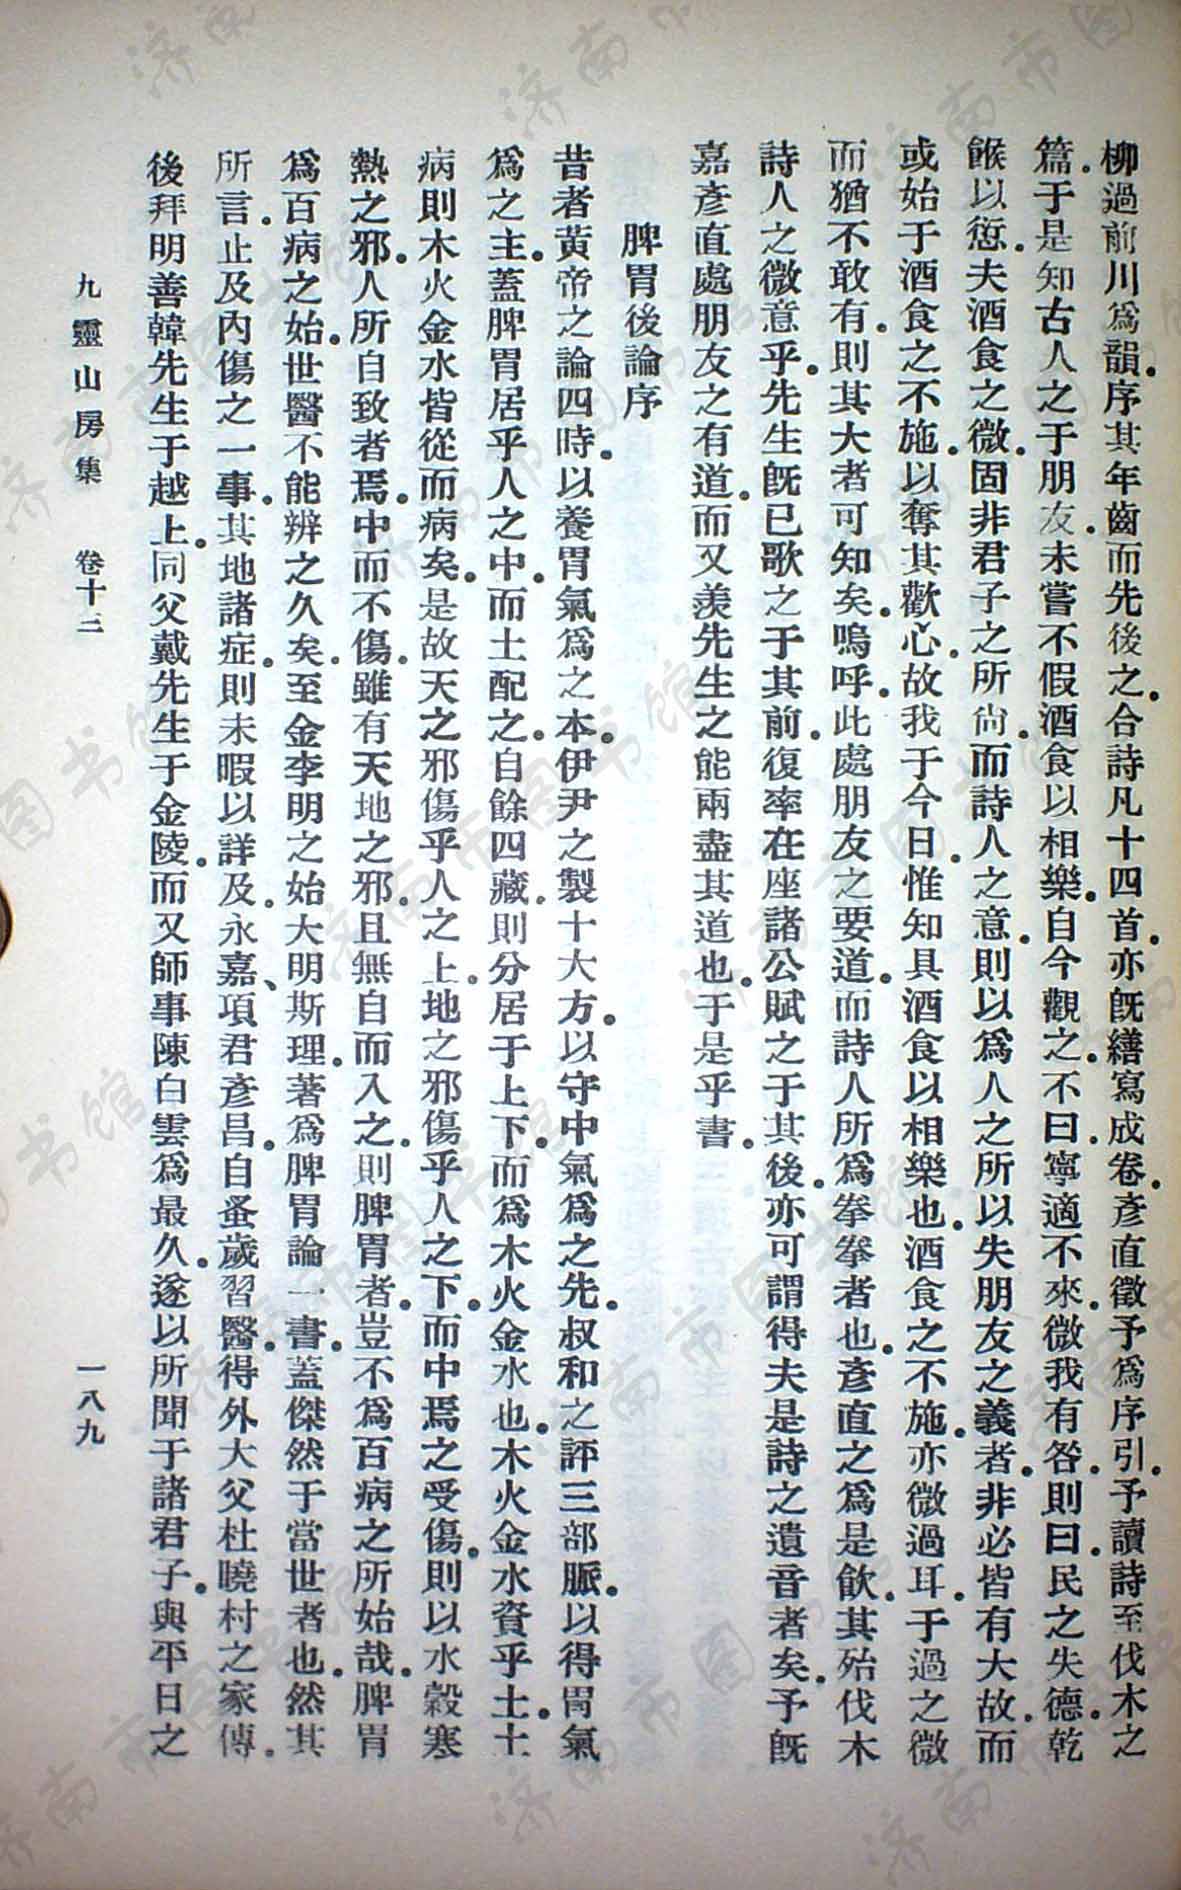 柳過前川爲韻。序其年齒而先後之。合詩凡十四首。亦旣繕寫成卷。彥直徵予爲序引。予讀詩至伐木之
篇。于是知古人之于朋友。未嘗不假酒食以相樂。自今觀之。不曰。寧適不來。微我有咎。則曰。民之失德。乾
餱以愆。夫酒食之微。固非君子之所尙。而詩人之意。則以爲人之所以失朋友之義者。非必皆有大故。而
或始于酒食之不施。以奪其歡心。故我于今日。惟知具酒食以相樂也。酒食之不施。亦微過耳。于過之微
而猶不敢有。則其大者可知矣。嗚呼。此處朋友之要道。而詩人所爲拳拳者也。彥直之爲是飮。其殆伐木
詩人之微意乎。先生旣已歌之于其前。復率在座諸公賦之于其後。亦可謂得夫是詩之遺音者矣。予旣
嘉彥直處朋友之有道。而又羨先生之能兩盡其道也。于是乎書。
脾胃後論序
昔者黃帝之論四時。以養胃氣爲之本。伊尹之製十大方。以守中氣爲之先。叔和之評三部脈。以得胃氣
爲之主。蓋脾胃居乎人之中。而土配之。自餘四藏。則分居于上下。而爲木火金水也。木火金水資乎土。土
病則木火金水皆從而病矣。是故天之邪傷乎人之上。地之邪傷乎人之下。而中焉之受傷。則以水穀寒
熱之邪。人所自致者焉。中而不傷。雖有天地之邪。且無自而入之。則脾胃者。豈不爲百病之所始哉。脾胃
爲百病之始。世醫不能辨之久矣。至金李明之始大明斯理。著爲脾胃論一書。蓋傑然于當世者也。然其
所言。止及內傷之一事。其他諸症。則未暇以詳及。永嘉、項君彥昌。自蚤歲習醫。得外大父杜曉村之家傳。
後拜明善韓先生于越上。同父戴先生于金陵。而又師事陳白雲爲最久。遂以所聞于諸君子。與平日之
九靈山房集 卷十三 一八九